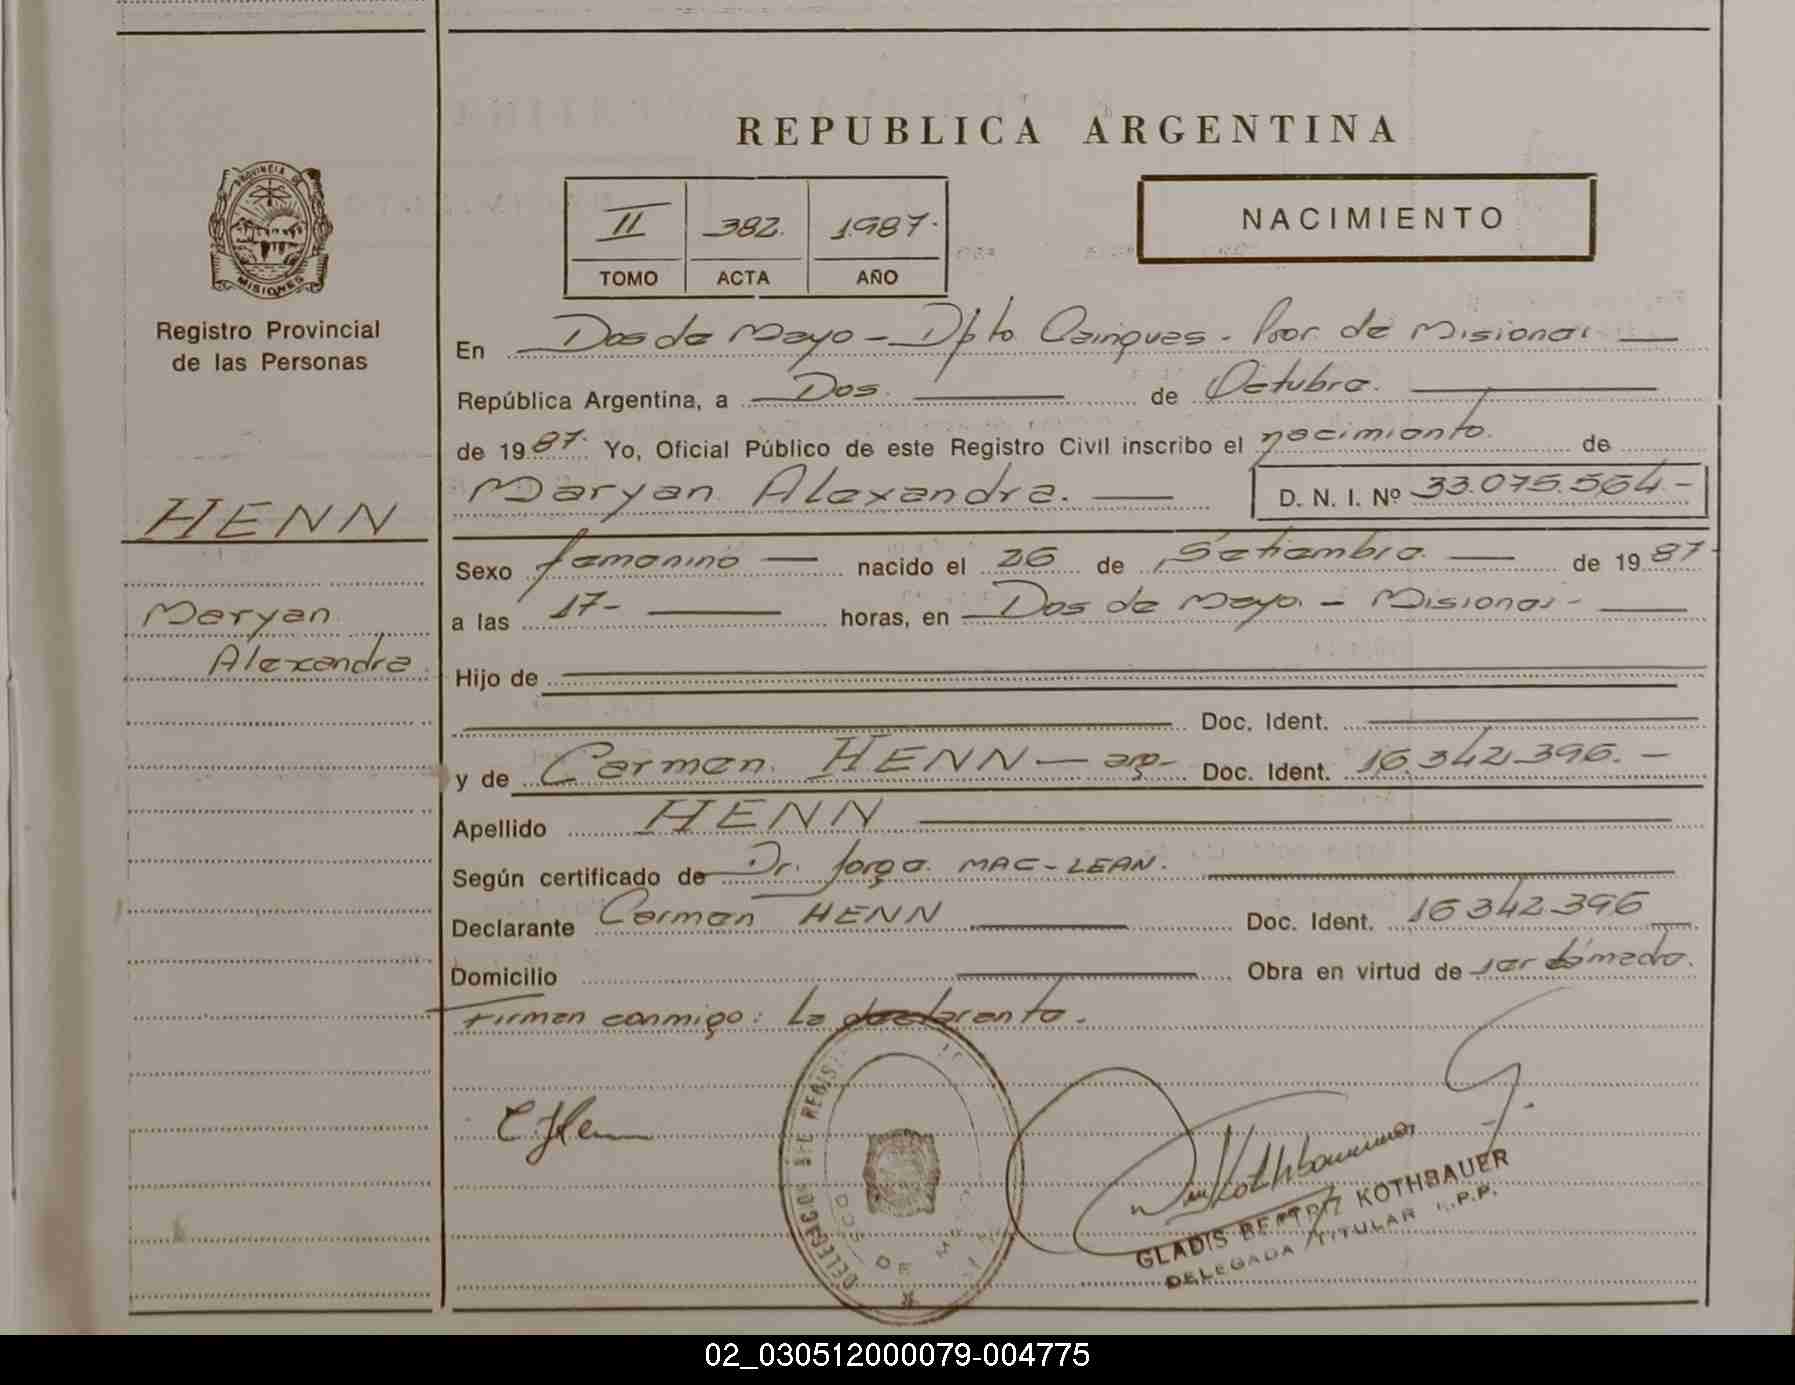 REPUBLICA ARGENTINA
PROVINCIA DE
MISIONES
Registro Provincial
de las Personas
II 382. 1987.
TOMO ACTA AÑO
NACIMIENTO
En Dos de Mayo - Dpto Cainguas - Pror. de Misiones
República Argentina, a Dos. de Octubre.
de 1987. Yo, Oficial Público de este Registro Civil inscribo el nacimiento. de
Maryan Alexandra. D. N. I. Nº 33.075.564.-
HENN
Maryan
Alexandra.
Sexo femenino nacido el 26 de Setiembre. de 1987.
a las 17- horas, en Dos de Mayo. - Misiones-
Hijo de
Doc. Ident.
y de Carmen. HENN - arg- Doc. Ident. 16.342.396.-
Apellido HENN
Según certificado de Dr. Jorge. MAC-LEAN.
Declarante Carmen HENN Doc. Ident. 16342396
Domicilio Obra en virtud de ser la madre.
Firman conmigo: La declarante.
C. Henn
DELEGACION DEL REGIST
DOS DE MAYO
GLADIS BEATRIZ KOTHBAUER
DELEGADA TITULAR R.P.P.
02_030512000079-004775